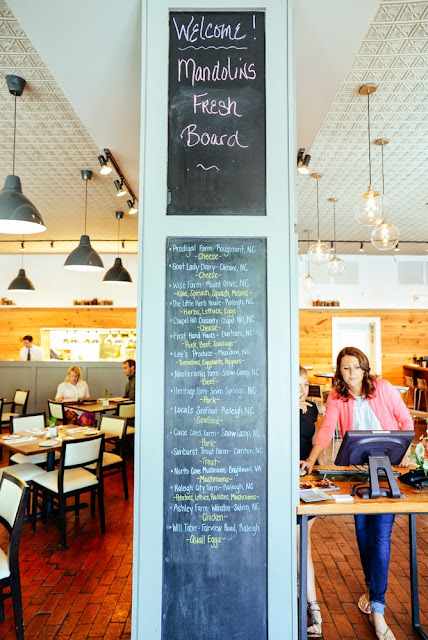 Welcome!
Mandolins
Fresh
Board
~
• Prodigal Farm - Rougemont, NC
- Cheese -
• Goat Lady Dairy - Climax, NC
- Cheese -
• Wise Farm - Mount Olive, NC
- Kale, Spinach, Squash, Melons -
• The Little Herb House - Raleigh, NC
- Herbs, Lettuce, Eggs -
• Chapel Hill Creamery - Chapel Hill, NC
- Cheese -
• First Hand Foods - Durham, NC
- Pork, Beef, Sausage -
• Lee's Produce - Meadow, NC
- Tomatoes, Eggplants, Peppers -
• Farm - Snow Camp, NC
- Beef -
• Heritage Farm - Seven Springs, NC
- Pork -
• Locals Seafood - Raleigh, NC
- Seafood -
• Cane Creek Farm - Snow Camp, NC
- Pork -
• Sunburst Trout Farm - Canton, NC
- Trout -
• North Cove Mushrooms - , VA
- Mushrooms -
• Raleigh City Farm - Raleigh, NC
- Potatoes, Lettuce, Radishes, Mushrooms -
• Ashley Farm - Winston-Salem, NC
- Chicken -
• Will Taber - Fairview Road, Raleigh
- Quail Eggs -